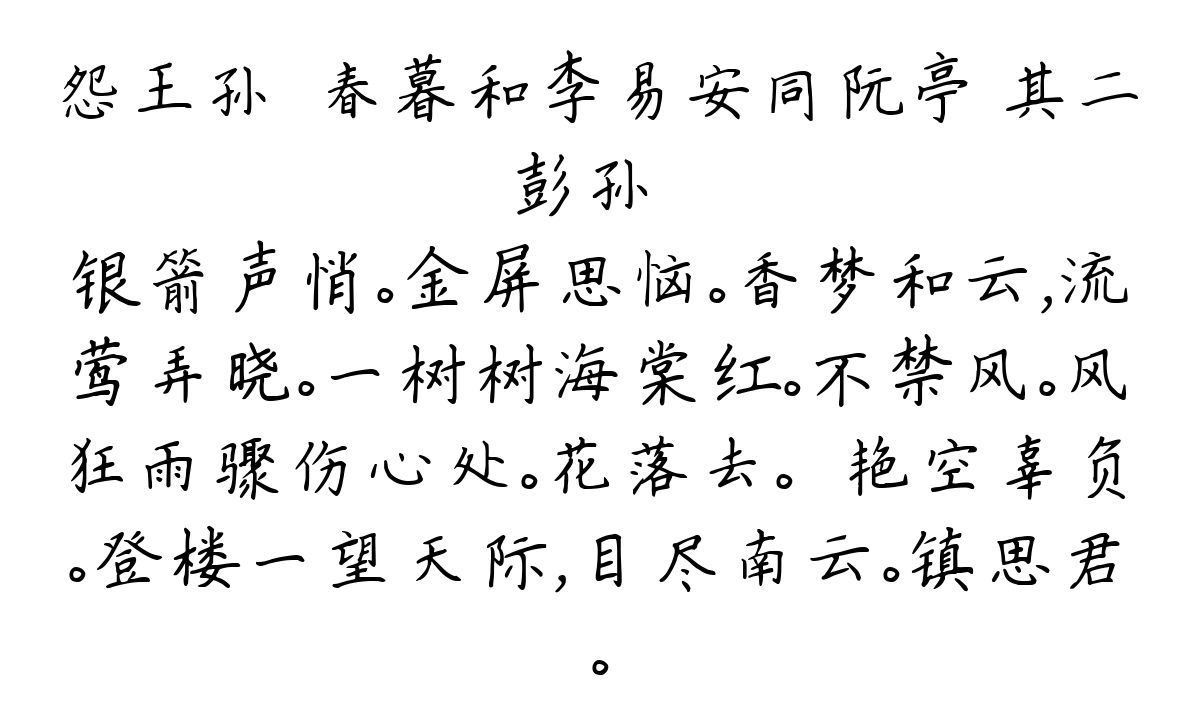 怨王孙 春暮和李易安同阮亭 其二
彭孙
银箭声悄。金屏思恼。香梦和云,流
莺弄晓。一树树海棠红。不禁风。风
狂雨骤伤心处。花落去。 艳空辜负
。登楼一望天际,目尽南云。镇思君
。